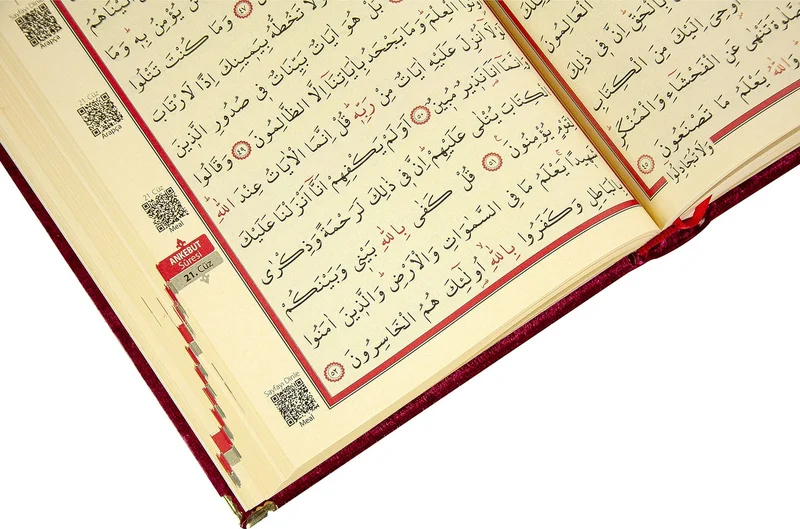 الْعَالِمُونَ
بِالْحَقِّ اِنَّ فٖى ذٰلِكَ
اُوحِىَ اِلَيْكَ مِنَ الْكِتَابِ
تَنْهٰى عَنِ الْفَحْشَٓاءِ وَالْمُنْكَرِ
وَاللّٰهُ يَعْلَمُ مَا تَصْنَعُونَ ٤٥
وَلَا تُجَادِلُٓوا
مَنْ يُؤْمِنُ بِهٖ وَمَا
٤٧ وَمَا كُنْتَ تَتْلُوا
وَلَا تَخُطُّهُ بِيَمٖينِكَ اِذًا لَارْتَابَ
بَلْ هُوَ اٰيَاتٌ بَيِّنَاتٌ فٖى صُدُورِ الَّذٖينَ
الْعِلْمَ وَمَا يَجْحَدُ بِاٰيَاتِنَٓا اِلَّا الظَّالِمُونَ ٤٩ وَقَالُوا
لَوْلَٓا اُنْزِلَ عَلَيْهِ اٰيَاتٌ مِنْ رَبِّهٖ قُلْ اِنَّمَا الْاٰيَاتُ عِنْدَ اللّٰهِ
وَاِنَّمَٓا اَنَا نَذٖيرٌ مُبٖينٌ ٥٠ اَوَلَمْ يَكْفِهِمْ اَنَّٓا اَنْزَلْنَا عَلَيْكَ
الْكِتَابَ يُتْلٰى عَلَيْهِمْ اِنَّ فٖى ذٰلِكَ لَرَحْمَةً وَذِكْرٰى
يُؤْمِنُونَ ٥١ قُلْ كَفٰى بِاللّٰهِ بَيْنٖى وَبَيْنَكُمْ
شَهٖيدًا يَعْلَمُ مَا فِى السَّمٰوَاتِ وَالْاَرْضِ وَالَّذٖينَ اٰمَنُوا
بِالْبَاطِلِ وَكَفَرُوا بِاللّٰهِ اُولٰٓئِكَ هُمُ الْخَاسِرُونَ ٥٢
Arapça
21.Cüz
Arapça
21.Cüz
Meal
ANKEBUT
Sûresi
21. Cüz
Sayfayı Dinle
Meal